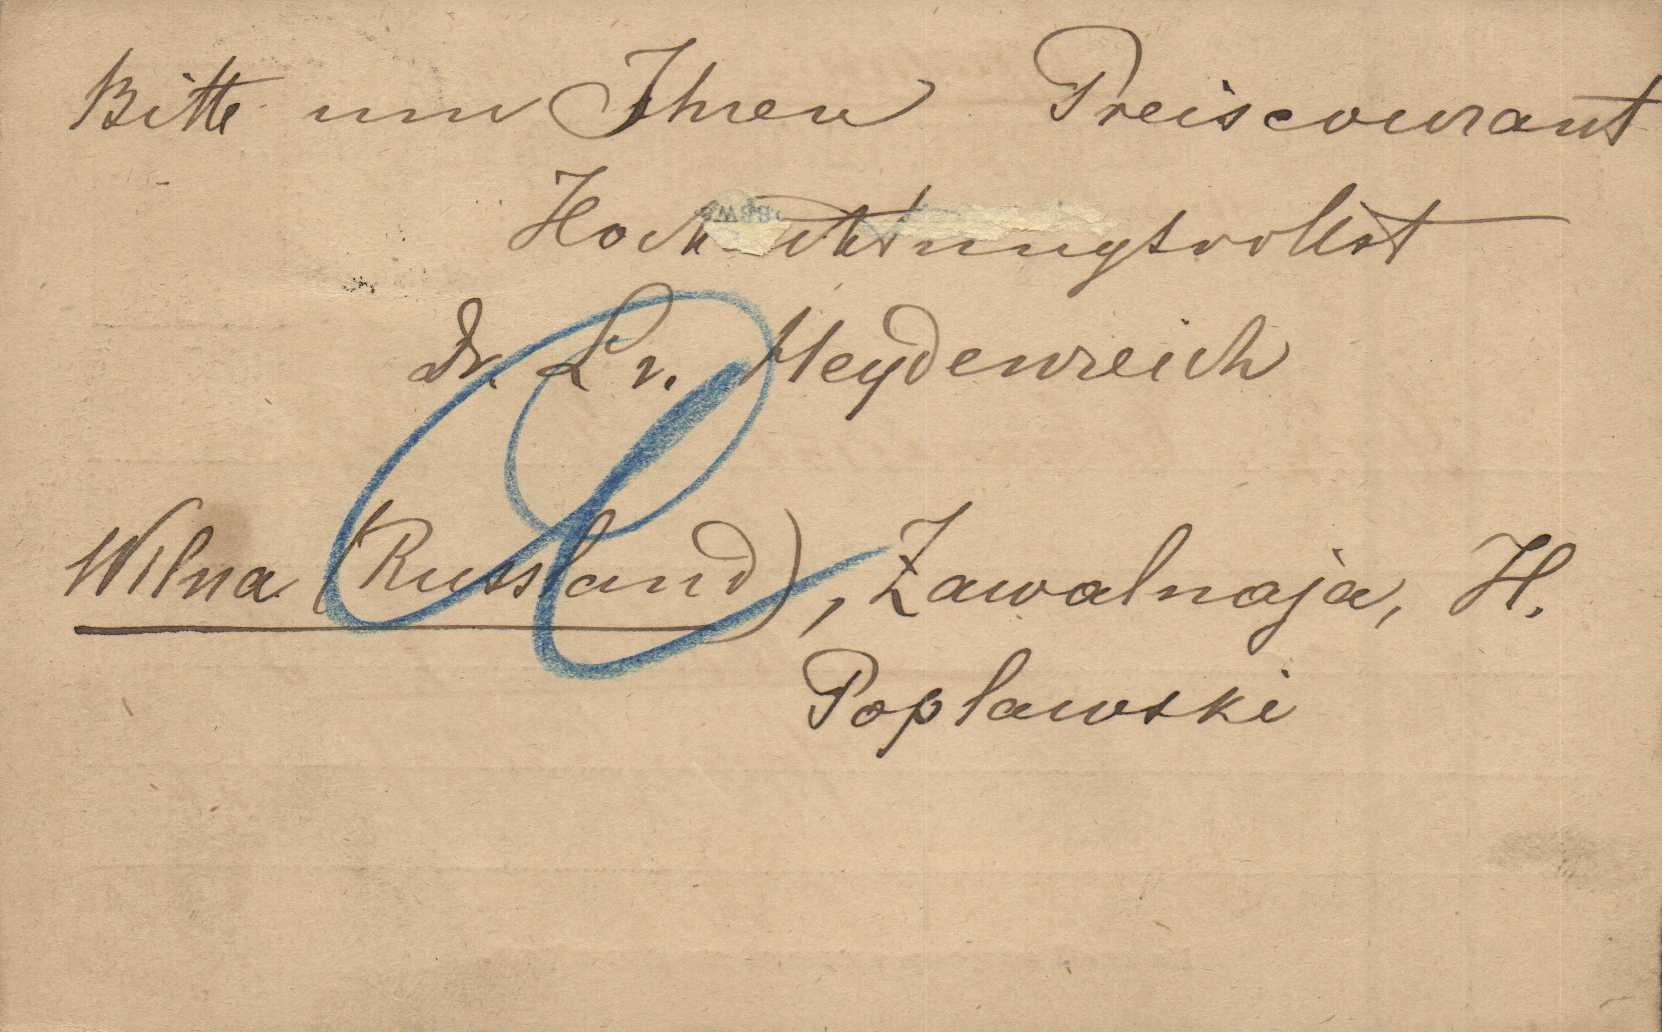 Bitte um Ihren Preiscourant
Hochachtungsvollst
Dr. L v. Heydenreich
Wilna (Russland), Zawalnaja, H.
Poplawski